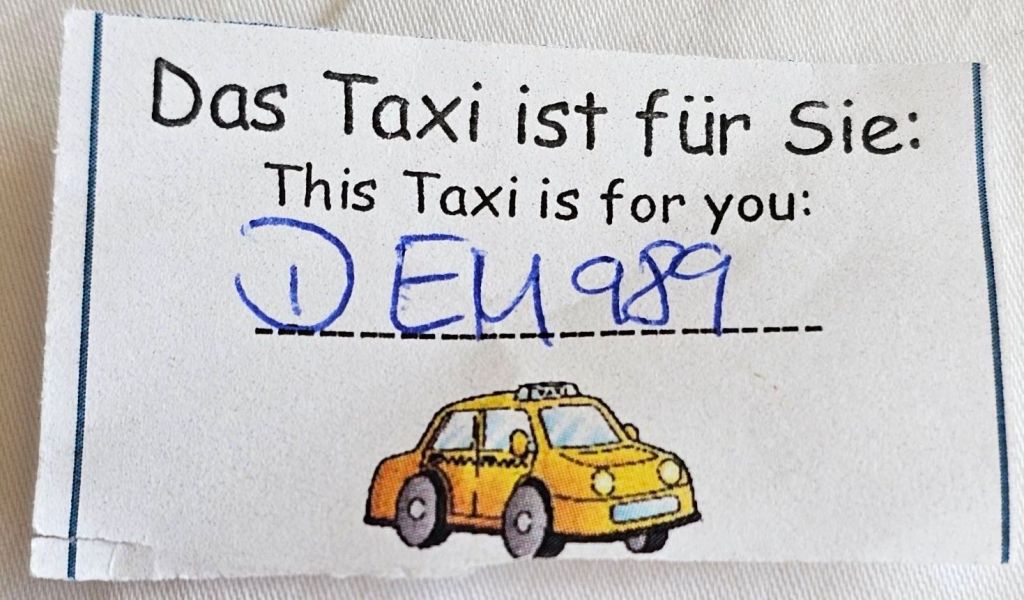 Das Taxi ist für Sie:
This Taxi is for you:
D EM 989